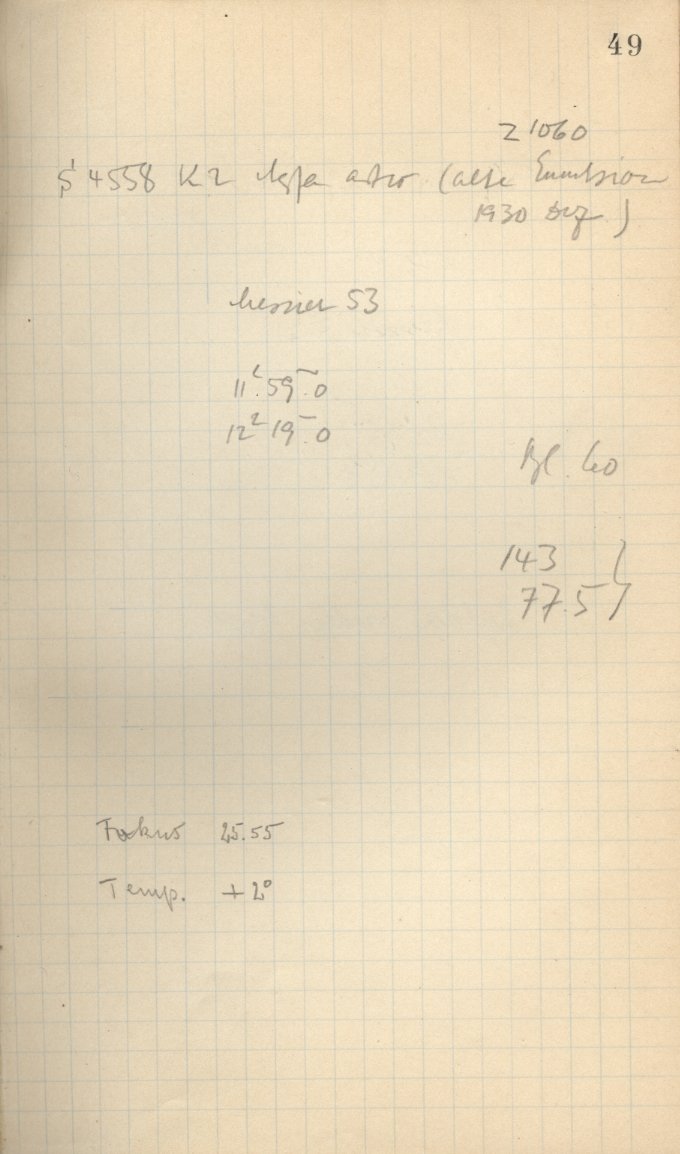 49
Z 1060
S 4558 K2 Agfa astro (alte Emulsion
1930 Dez)
Messier 53
11ʰ 59ᵐ.0
12ʰ 19ᵐ.0
Bl. 60
143 }
77.5
Fokus 25.55
Temp. +2°